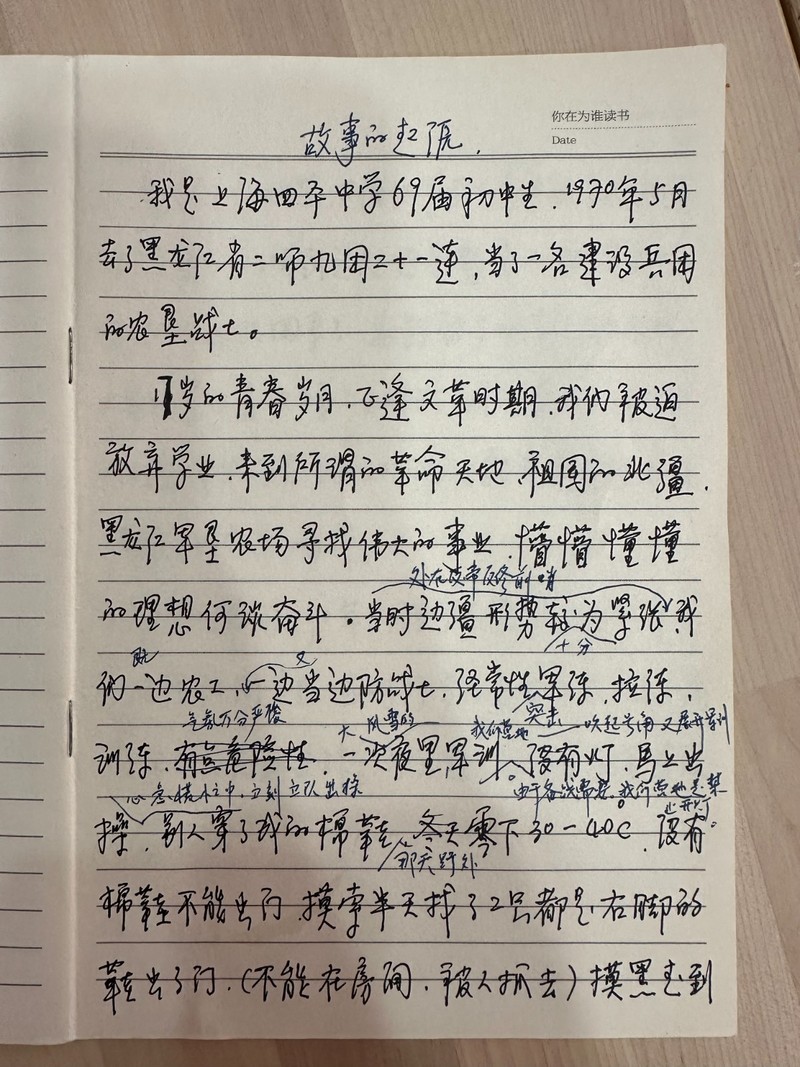 你在为谁读书
Date
故事的起源.
我是上海四平中学69届初中生.1970年5月
去了黑龙江省二师九团二十一连,当了一名建设兵团
的农垦战士。
17岁的青春岁月.正逢文革时期.我们被迫
放弃学业,来到所谓的革命天地,祖国的北疆.
黑龙江军垦农场寻找伟大的事业.懵懵懂懂
处在反帝反修前哨
的理想何谈奋斗。当时边疆形势较为紧张,我
十分
既 又
们一边农工,一边当边防战士,经常性军练,拉练,
气氛万分严峻 大风雪的 我们营地 突击 吹起号角又展开军训
训练.有点危险性.一次夜里军训,没有灯,马上出
心急慌忙之中,立刻立队出操 由于备战需要,我们营地是禁
止开灯。
操,别人穿了我的棉鞋,冬天零下30-40C.没有
那天野外
棉鞋不能出门.摸索半天找了2只都是右脚的
鞋出了门.(不能在房间.被人抓去)摸黑走到